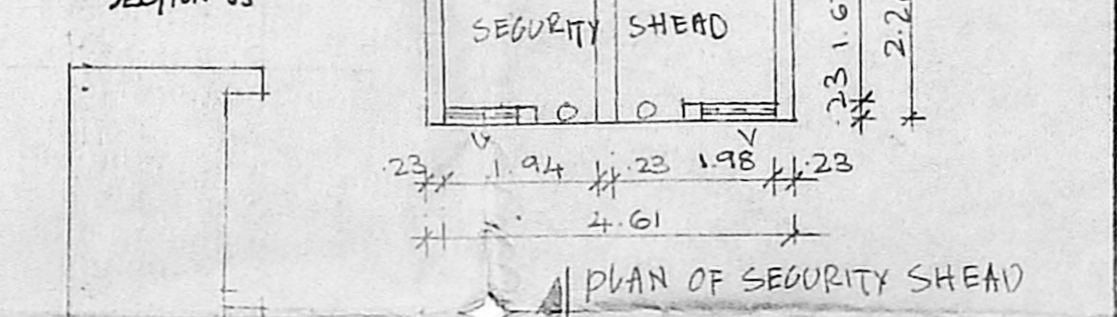 SECURITY SHEAD
.23 1.6
2.2
V V
.23 1.94 .23 1.98 .23
4.61
PLAN OF SECURITY SHEAD